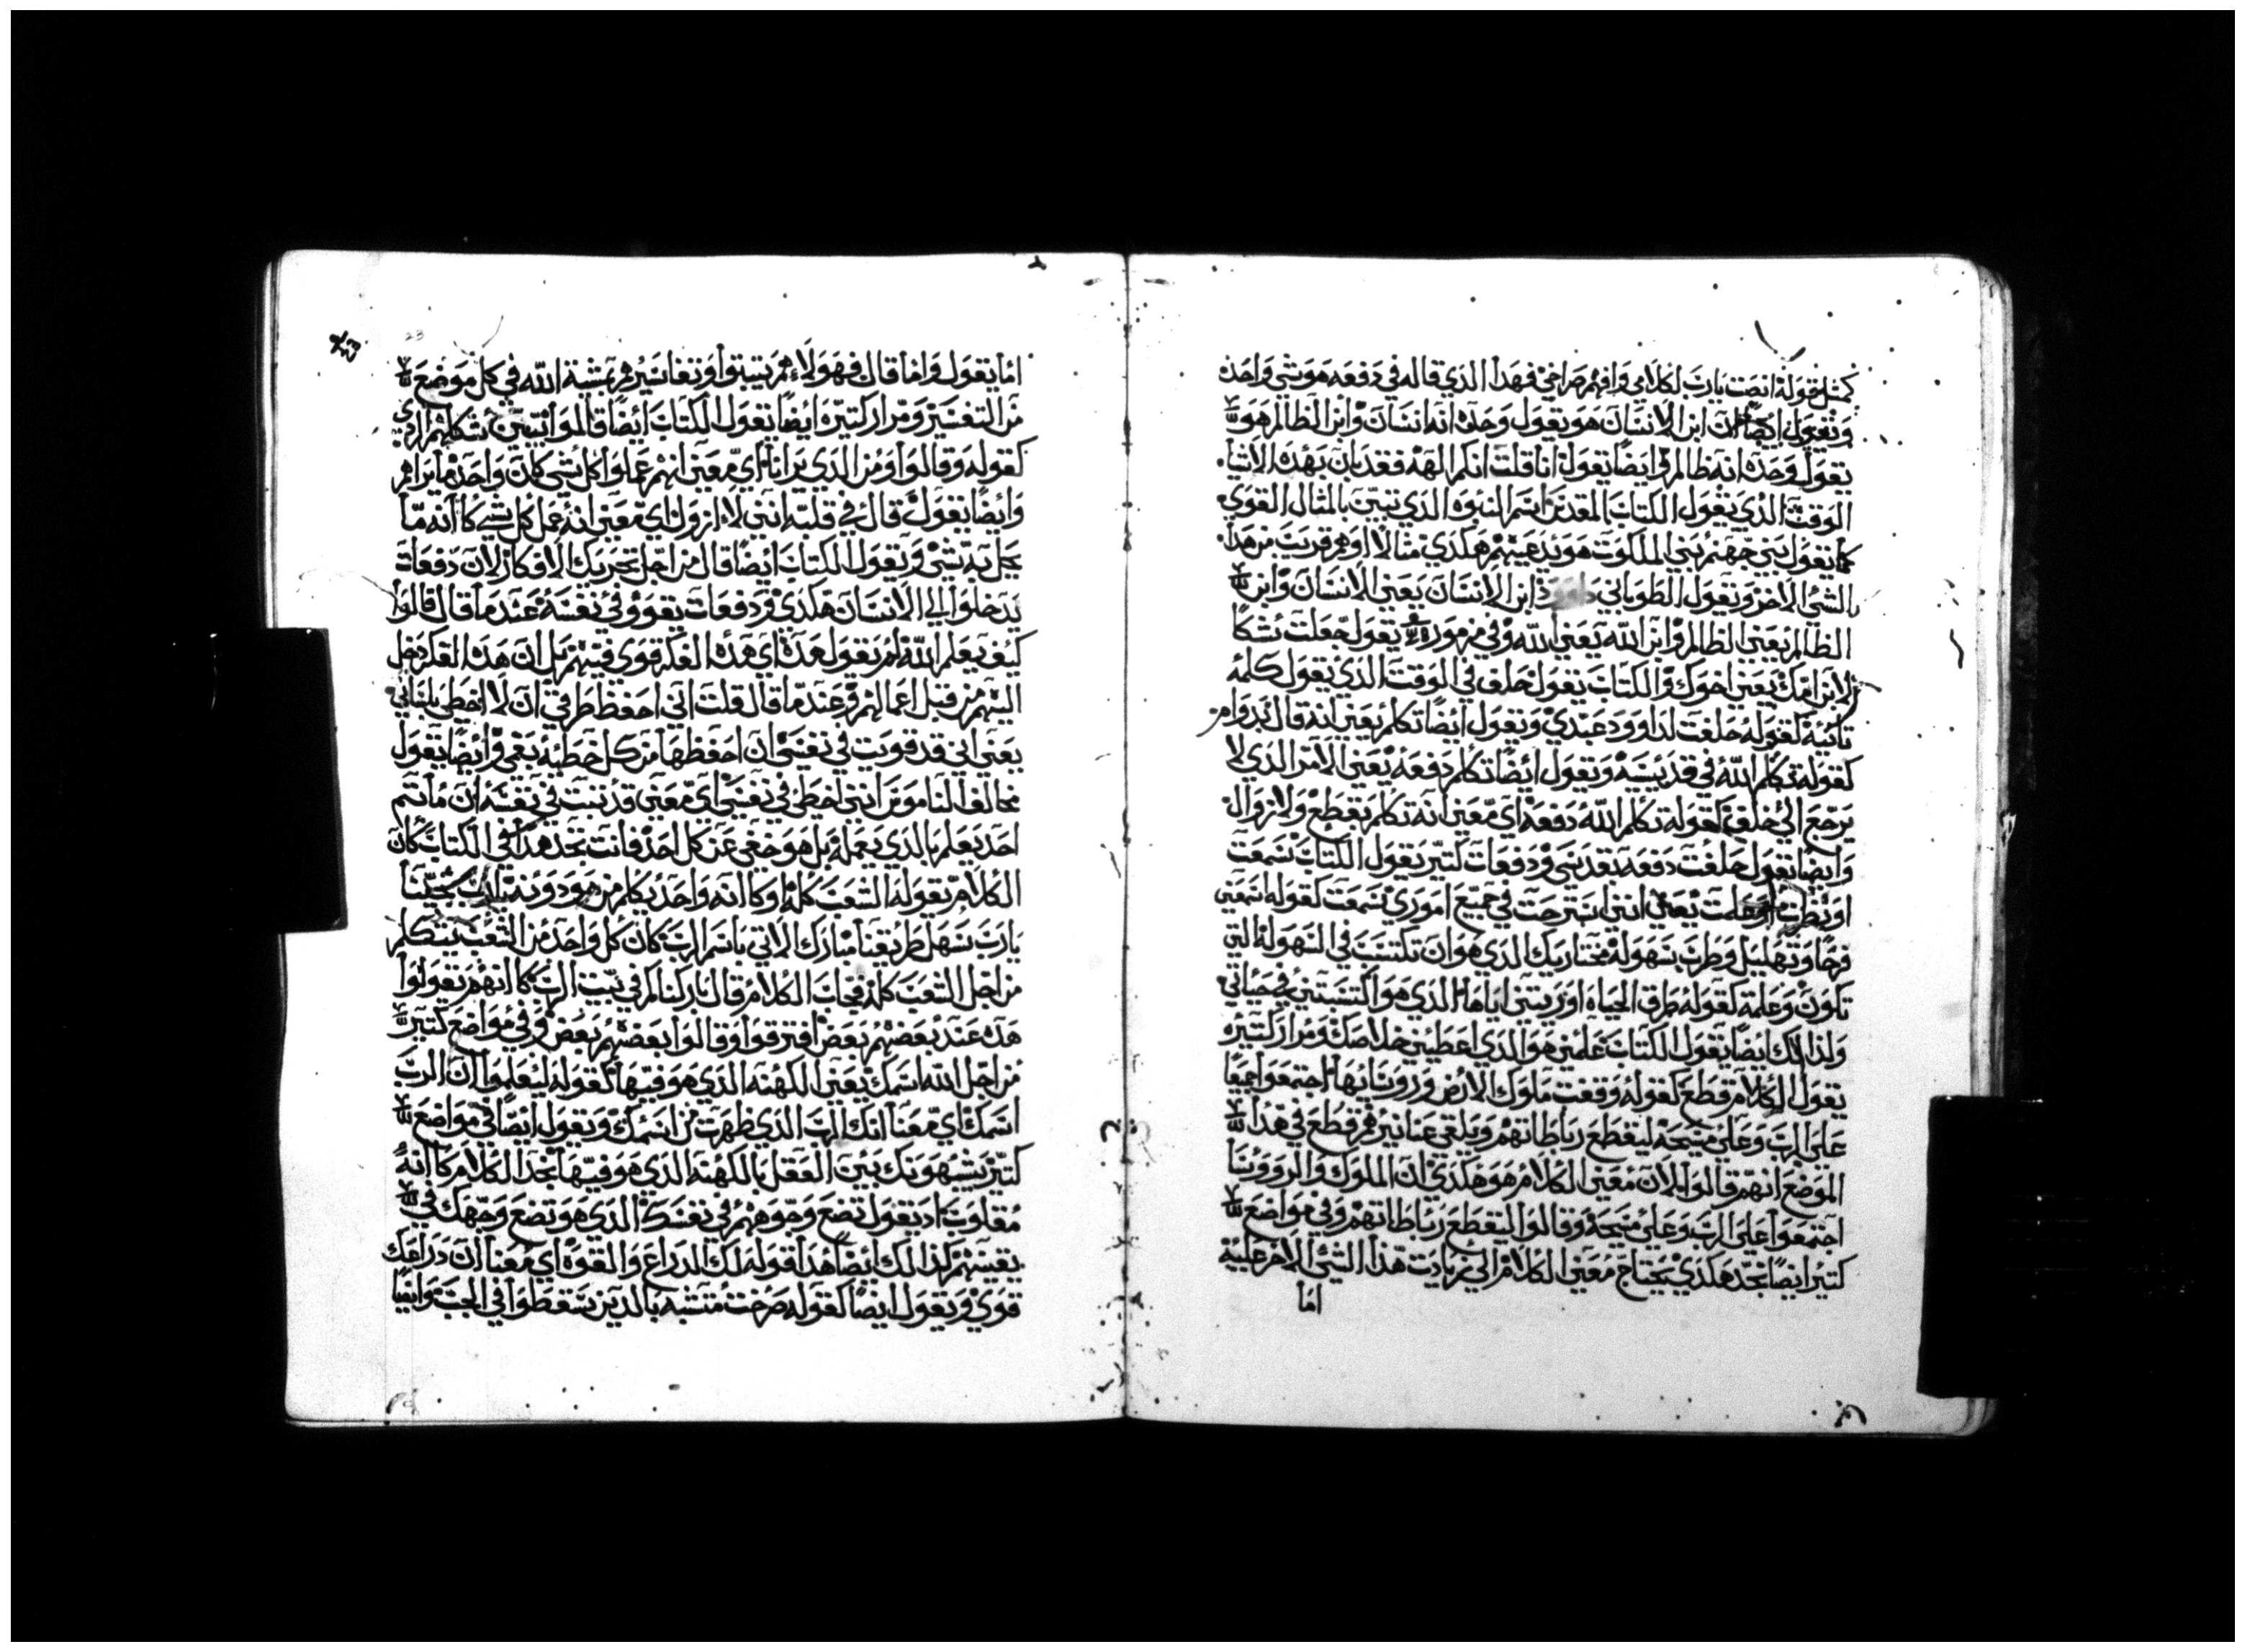 كمثل قوله انصت يارب لكلامي وافهم صراخي فهدا الدي قاله في دفعه هو شي واحد
ويقول ايضا ان ابن الانسان هو يقول وحده انه انسان وابن الظالم هو
يقول وحده انه ظالم وايضا يقول انا قلت انكم الهه فقد بان بهده الاشيا
الوقت الذي يقول الكتاب المقدس اسم النبوه الذي تبين بالمثال القوي
كما يقول بني جهنم بني الملكوت هو يدعيهم هكدي مثالا اوهم قريب من هدا
بالشئ الاخر ويقول الطوباني داوود ابن الانسان يعني الانسان وابن
الظالم يعني الظالم وابن الله يعني الله وفي مزموره يقول جعلت شكا
لابن امك يعني اخوك والكتاب يقول حلف في الوقت الذي يقول كلمه
تانيه لقوله حلفت لداوود عبدي ويقول ايضا تكلم يعني انه قال
كقوله تكلم الله في قديسيه ويقول ايضا تكلم دفعه يعني الامر الذي لا
يرجع الي خلف كقوله تكلم الله دفعه اي معني انه تكلم بقطع ولا زوال
وايضا يقول حلفت دفعه بقدسي ودفعات كتير يقول الكتاب سمعت
او نظرت او علمت يعني انني استرحت في جميع اموري سمعت كقوله اسمعني
فرحا وتهليل وطرب سهوله مختاريك الدي هو ان تكتسب في السهوله التي
تكون وعلمه كقوله طرق الحياه اوريتني اياها الذي هو اكتسبتني في حياتي
ولذالك ايضا يقول الكتاب علمني هو الذي اعطيني خلاصك ومرار كتيره
يقول الكلام قطع كقوله وقفت ملوك الارض وروسايها اجتمعوا جميعا
علي الرب وعلي مسيحه ليقطع رباطاتهم ويلقي عنا نيرهم قطع في هدا
الموضع انهم قالوا لان معني الكلام هو هكدي ان الملوك والرووسا
اجتمعوا علي الرب وعلي مسيحه وقالوا ليقطع رباطاتهم وفي مواضع
كتير ايضا تجد هكدي يحتاج معني الكلام الي زيادت هذا الشئ الاخر عليه
اما
23
اما يقول واما قال فهولاء هم يتبتوا وتفاسيرهم بمشية الله في كل موضع
من التفسير ومرار كتيره ايضا يقول الكتاب ايضا قالوا
كقوله وقالوا ومن الدي يرانا اي معني انهم عملوا كل شي كان واحد ما يراهم
وايضا يقول قال في قلبه انني لا ازول اي معني انه عمل كل شي كا انه ما
يحل به شي ويقول الكتاب ايضا قال من اجل تحريك الافكار لان دفعات
يدخلوا الي الانسان هكدي ودفعات يقوو في نفسه عند ما قال قالوا
كيف يعلم الله لم يقول هده اي هده الفكر قوي فيهم بل ان هده الفكر دخل
اليهم من قبل اعمالهم وعند ما قال قلت اني احفظ طرقي ان لا اخطي بلساني
يعني اني قد قويت في نفسي ان احفظها من كل خطيه بفمي وايضا يقول
مخالف الناموس انني اخطي في نفسي اي معني قد تبت في نفسه ان ما تم
احد يعلم بالدي يعمله بل هو خفي عن كل احد فانت تجد هدا في الكتاب كان
الكلام يقوله الشعب كله او كا انه واحد يكلم من
يارب سهل طريقنا مبارك الاتي باسم الرب كان كل واحد من الشعب يتكلم
من اجل الشعب كله فجات الكلام قال باركناكم في بيت الرب كا انهم يقولوا
هده عند بعضهم بعض افترقوا وقالوا بعضهم بعض وفي مواضع كتير
من اجل الله اسمك يعني الكهنه الدي هو فيها كقوله ليعلموا ان الرب
اسمك اي معنا انك الرب الدي ظهرت من اسمك ويقول ايضا في مواضع
كتير بين العقل بالكهنه الدي هو فيها تجد الكلام كا انه
مقلوب اد يقول تضع وجوههم في نفسك الدي هو تضع وجهك في
بقيتهم كذالك ايضا هدا قوله لك الدراع والقوه اي معنا ان دراعك
قوي ويقول ايضا كقوله صرخت متشبه بالدين يسقطوا في الجب وايضا